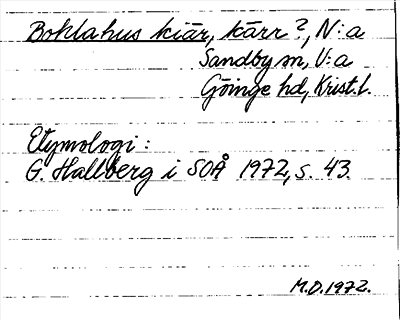 Boklahus kiär, kärr?, N:a
Sandby sn, V:a
Göinge hd, Krist. l.
Etymologi:
G. Hallberg i SOÅ 1972, s. 43.
M.D. 1972.